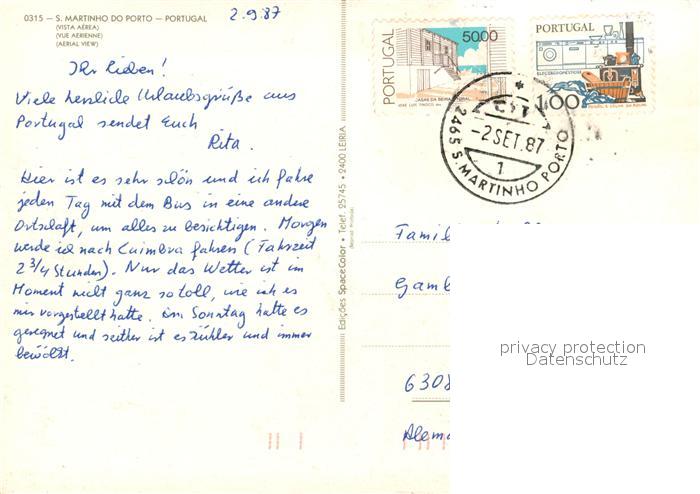 0315 – S. MARTINHO DO PORTO – PORTUGAL
(VISTA AÉREA)
(VUE AERIENNE)
(AERIAL VIEW)
2.9.87
Ihr Lieben!
Viele herzliche Urlaubsgrüße aus
Portugal sendet Euch
Rita.
Hier ist es sehr schön und ich fahre
jeden Tag mit dem Bus in eine andere
Ortschaft, um alles zu besichtigen. Morgen
werde ich nach Cuimbra fahren (Fahrzeit
2 3/4 Stunden). Nur das Wetter ist im
Moment nicht ganz so toll, wie ich es
mir vorgestellt hatte. Am Sonntag hatte es
geregnet und seither ist es kühler und immer
bewölkt.
Edições SpaceColor • Telef. 25745 • 2400 LEIRIA
PORTUGAL
50.00
CASAS DA BEIRA
PORTUGAL
ELECTRODOMÉSTICOS
1.00
CTT
-2 SET. 87
1
2465 S. MARTINHO PORTO
Famil
Gamb
6308
Alema
privacy protection
Datenschutz